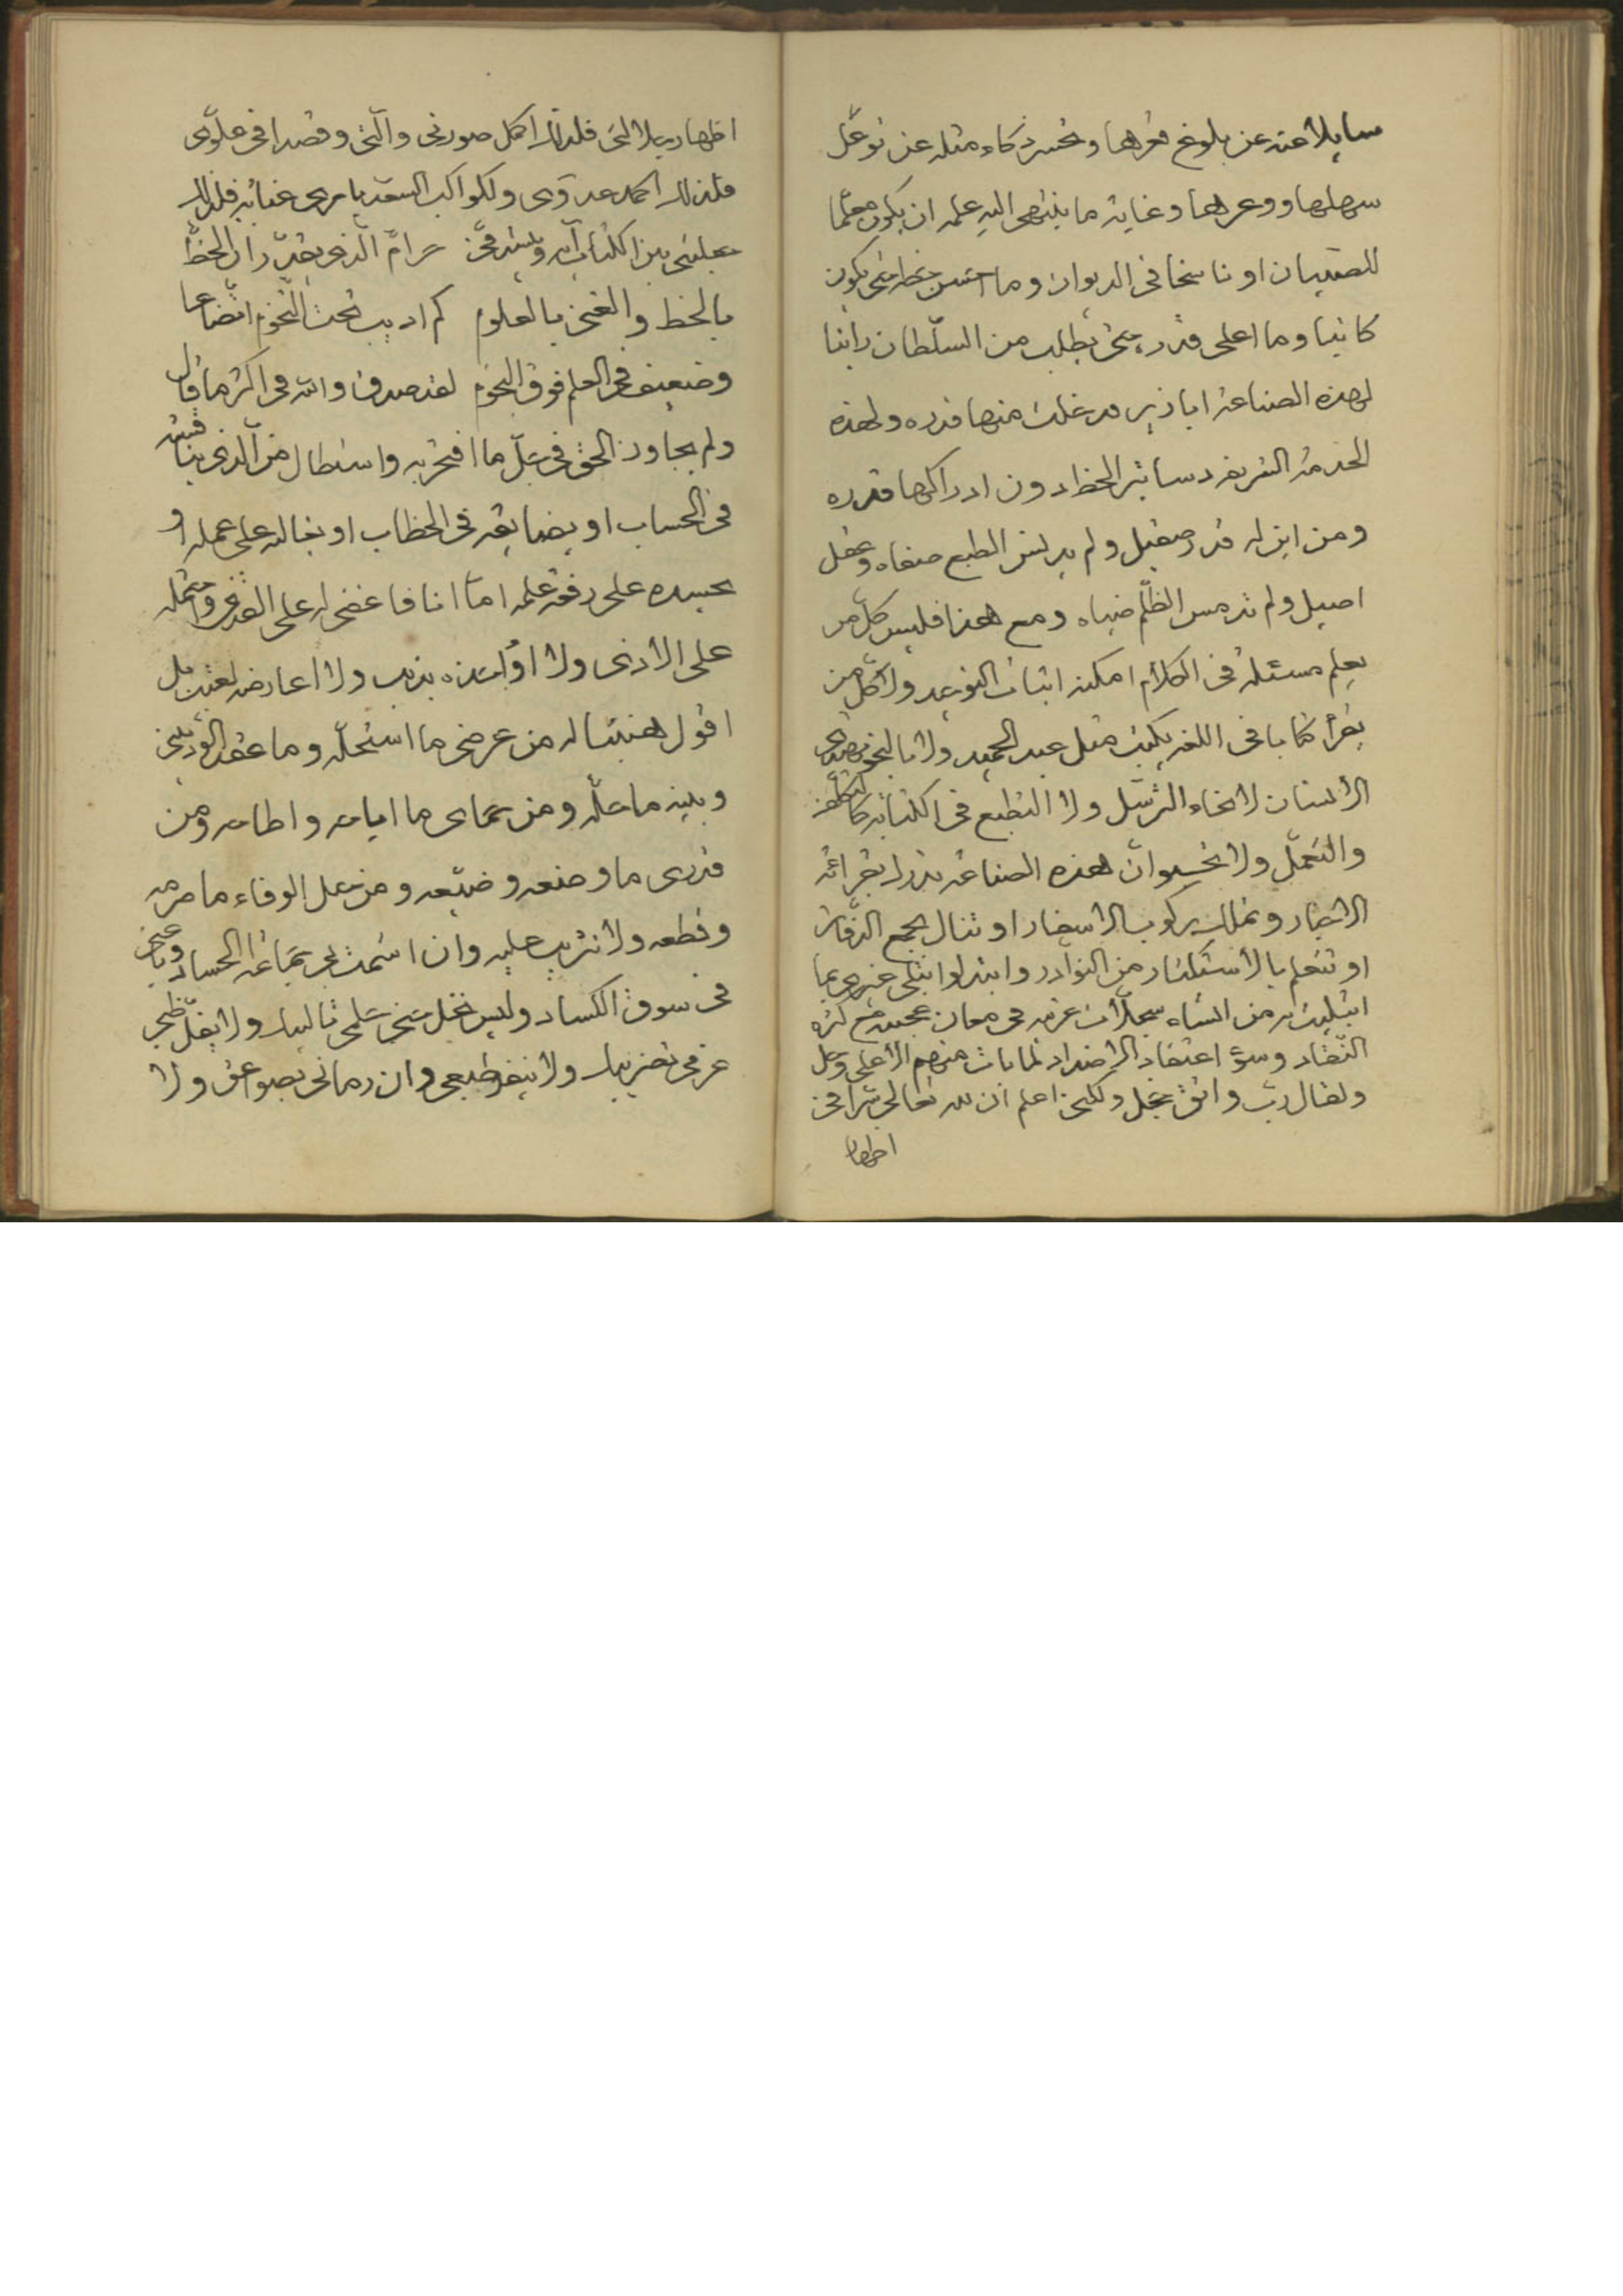 سايلا عنه عن بلوغ قعرها وخسر ذكاء مثله عن توغل
سهلها ووعرها وغاية ما ينتهى اليه علمه ان يكون معلما
للصبيان او ناسخا فى الديوان وما احسن خطه متى يكون
كاتبا وما اعلى قدره متى يطلب من السلطان راتبا
لهذه الصناعة ابازير قد خلت منها قدره ولهذه
الخدمة الشريفة دساتير الخط دون ادراكها قدره
ومن اين له قدر صقيل ولم يدنس الطبع صفاه وعقل
اصيل ولم تدمس الظلم ضياه ومع هذا فليس كل من
يعلم مسئلة فى الكلام امكنه اثبات التوحيد ولا كل من
يقرأ كتابا فى اللغة يكتب مثل عبد الحميد ولا بالنحو يهتدى
الانسان لانحاء الترسل ولا التطبع فى الكتابة كالتكلف
والتعمل ولا تحسبوا ان هذه الصناعة تدرك بقرائة
الاخبار وتملك بركوب الاسفار او تنال بجمع
او تتعلم بالاستكثار من النوادر وابتلوا غيرى بما
ابتليت به من انشاء سجلات غريبة فى معان عجيبة مع كثرة
النقاد وسوء اعتقاد الاضداد لما بات منهم الا على وجل
ولقال رب واثق خجل ولكنى اعلم ان لله تعالى سرا فى
اظهار
اظهار بلالتى فلذلك اكمل صورتى والتى وقصدا فى علوى
فلذلك احمد عدوى ولكواكب السعد يا مربى عناية فلذلك
بين الكتاب آية حرام الذى يقدر ان الحظ
بالخط والغنى بالعلوم كم اديب تحت التخوم اتضاعا
وضعيف فى العلم فوق النجوم لقد صدق والله فى اكثر ما قال
ولم يجاوز الحق فى جل ما افتخر به واستطال من الذى يناقشه
فى الحساب او يضايقه فى الخطاب او يغالبه على عمله او
يحسده على رفعة علمه اما انا فاغضى له على القذى واحتمله
على الاذى ولا اؤاخذه بذنب ولا اعارضه لعتب بل
اقول هنيئا له من عرضى ما استحله وما عقد الود بينى
وبينه ما حله ومن حماى ما اباحه واطاحه ومن
قدرى ما وضعه وضيعه ومن حبل الوفاء ما صرمه
وقطعه ولا تثريب عليه وان اشمت بى جماعة الحساد وباعنى
فى سوق الكساد وليس يحل متى على ثالبك ولا يفل
عزمى تضريبك ولا ينفر طبعى وان رمانى بصواعق ولا